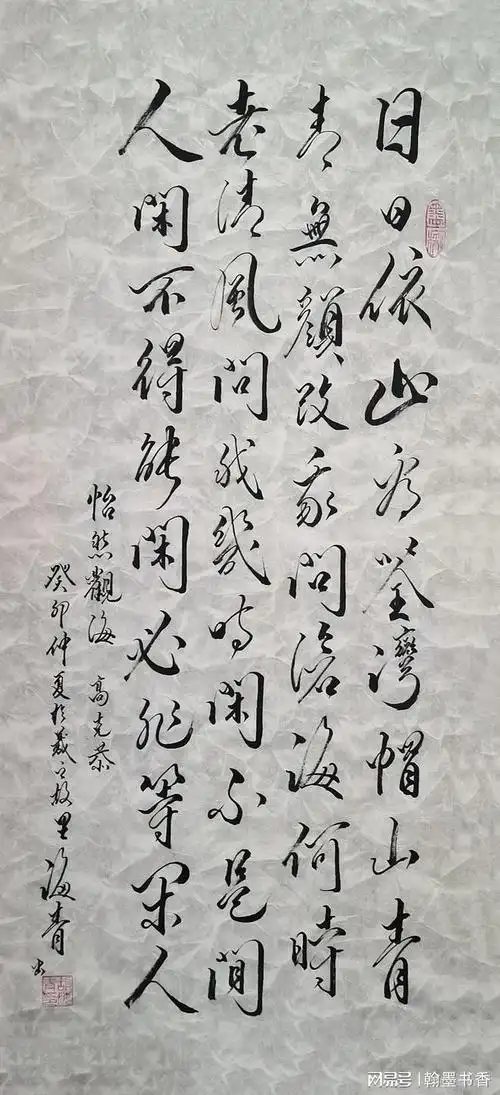 日日依山看荃灣帽山青
青無顏改我問滄海何時
老清風問我幾時閑不是閒
人閑不得能閑必非等閑人
怡然觀海 高克恭
癸卯仲夏於羲之故里海青书
网易号 | 翰墨书香